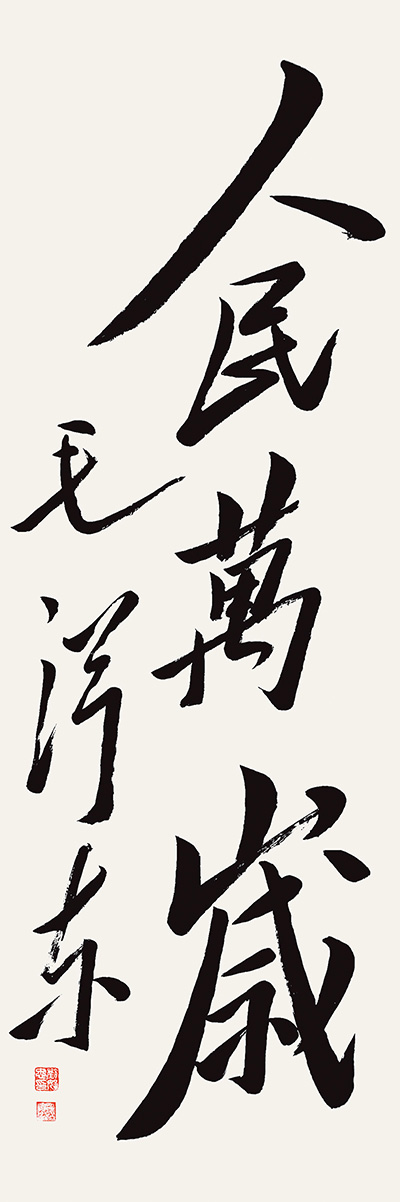 人民萬歲
毛泽东